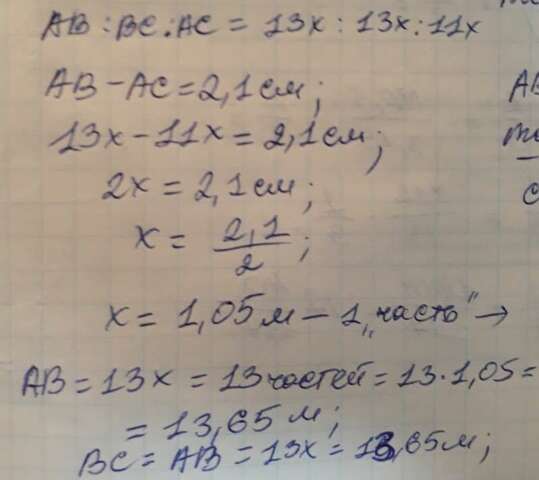 AB : BC : AC = 13x : 13x : 11x
AB - AC = 2,1 см;
13x - 11x = 2,1 см;
2x = 2,1 см;
x = 2,1/2;
x = 1,05 м - 1 „часть" →
AB = 13x = 13 частей = 13 · 1,05 =
= 13,65 м;
BC = AB = 13x = 13,65 м;